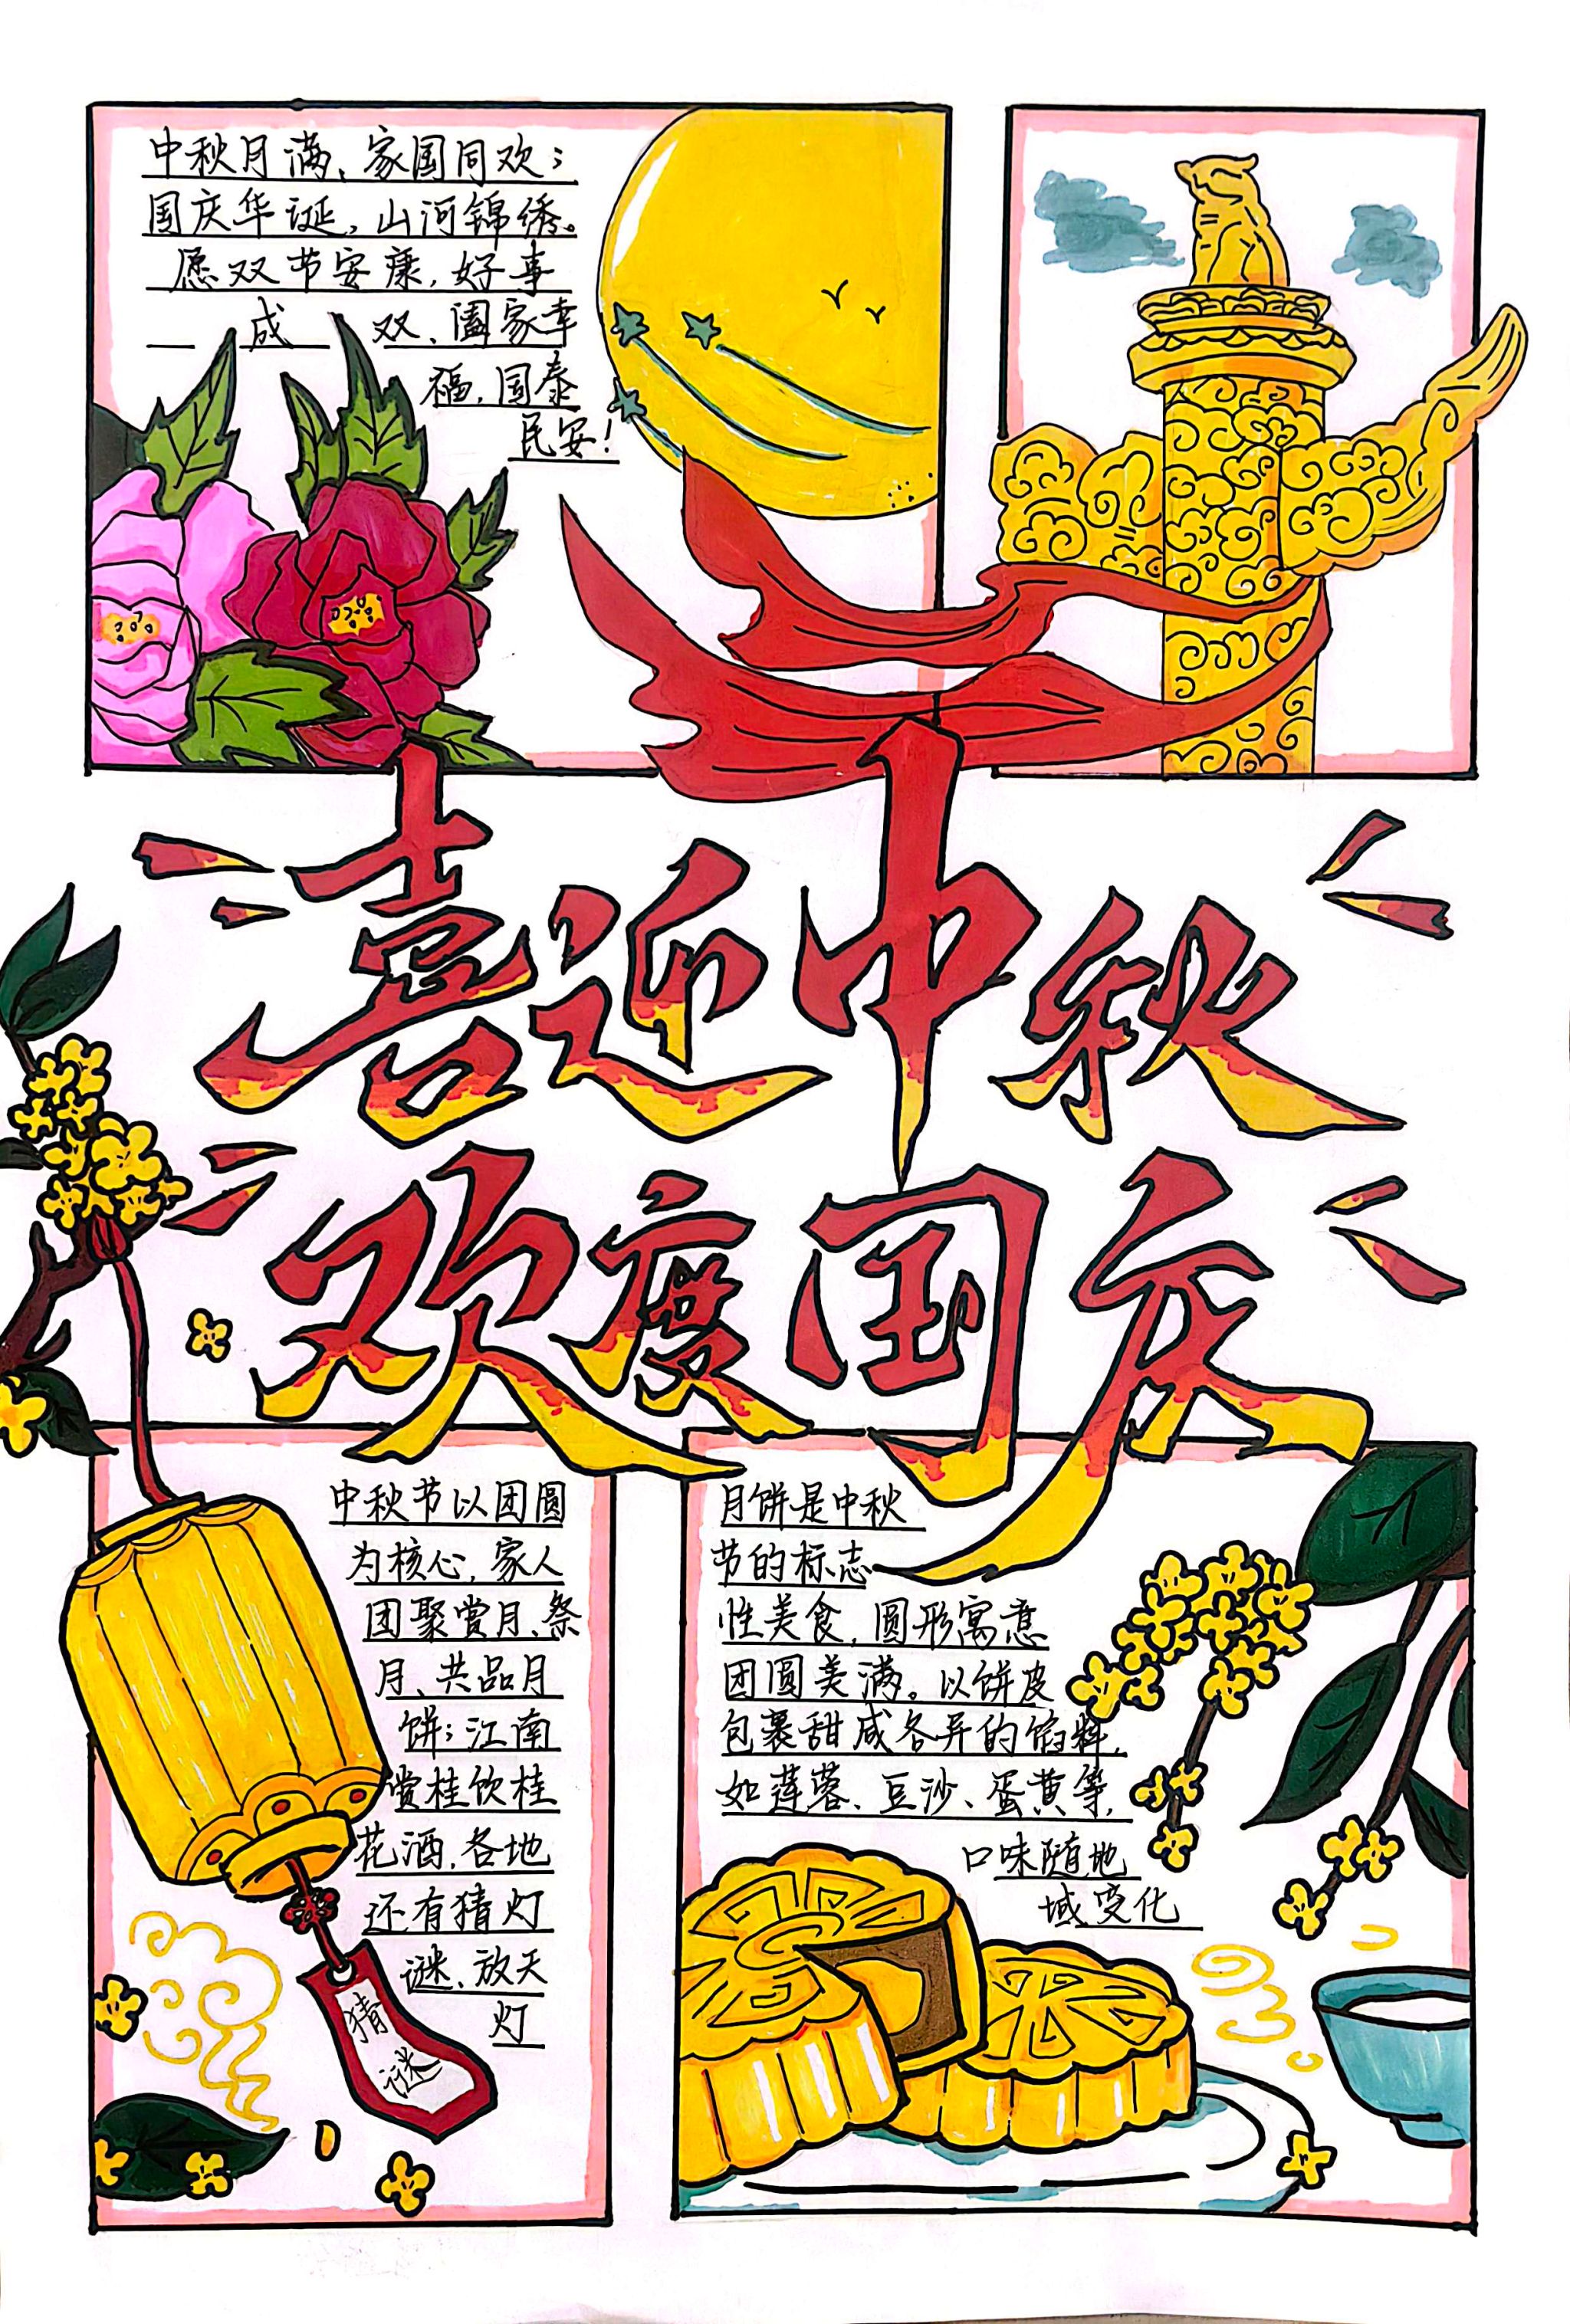 中秋月满、家国同欢；
国庆华诞，山河锦绣。
愿双节安康，好事
成双、阖家幸
福，国泰
民安！
喜迎中秋
欢度国庆
中秋节以团圆
为核心，家人
团聚赏月、祭
月、共品月
饼；江南
赏桂饮桂
花酒，各地
还有猜灯
谜、放天
灯
猜
谜
月饼是中秋
节的标志
性美食，圆形寓意
团圆美满。以饼皮
包裹甜咸各异的馅料，
如莲蓉、豆沙、蛋黄等，
口味随地
域变化